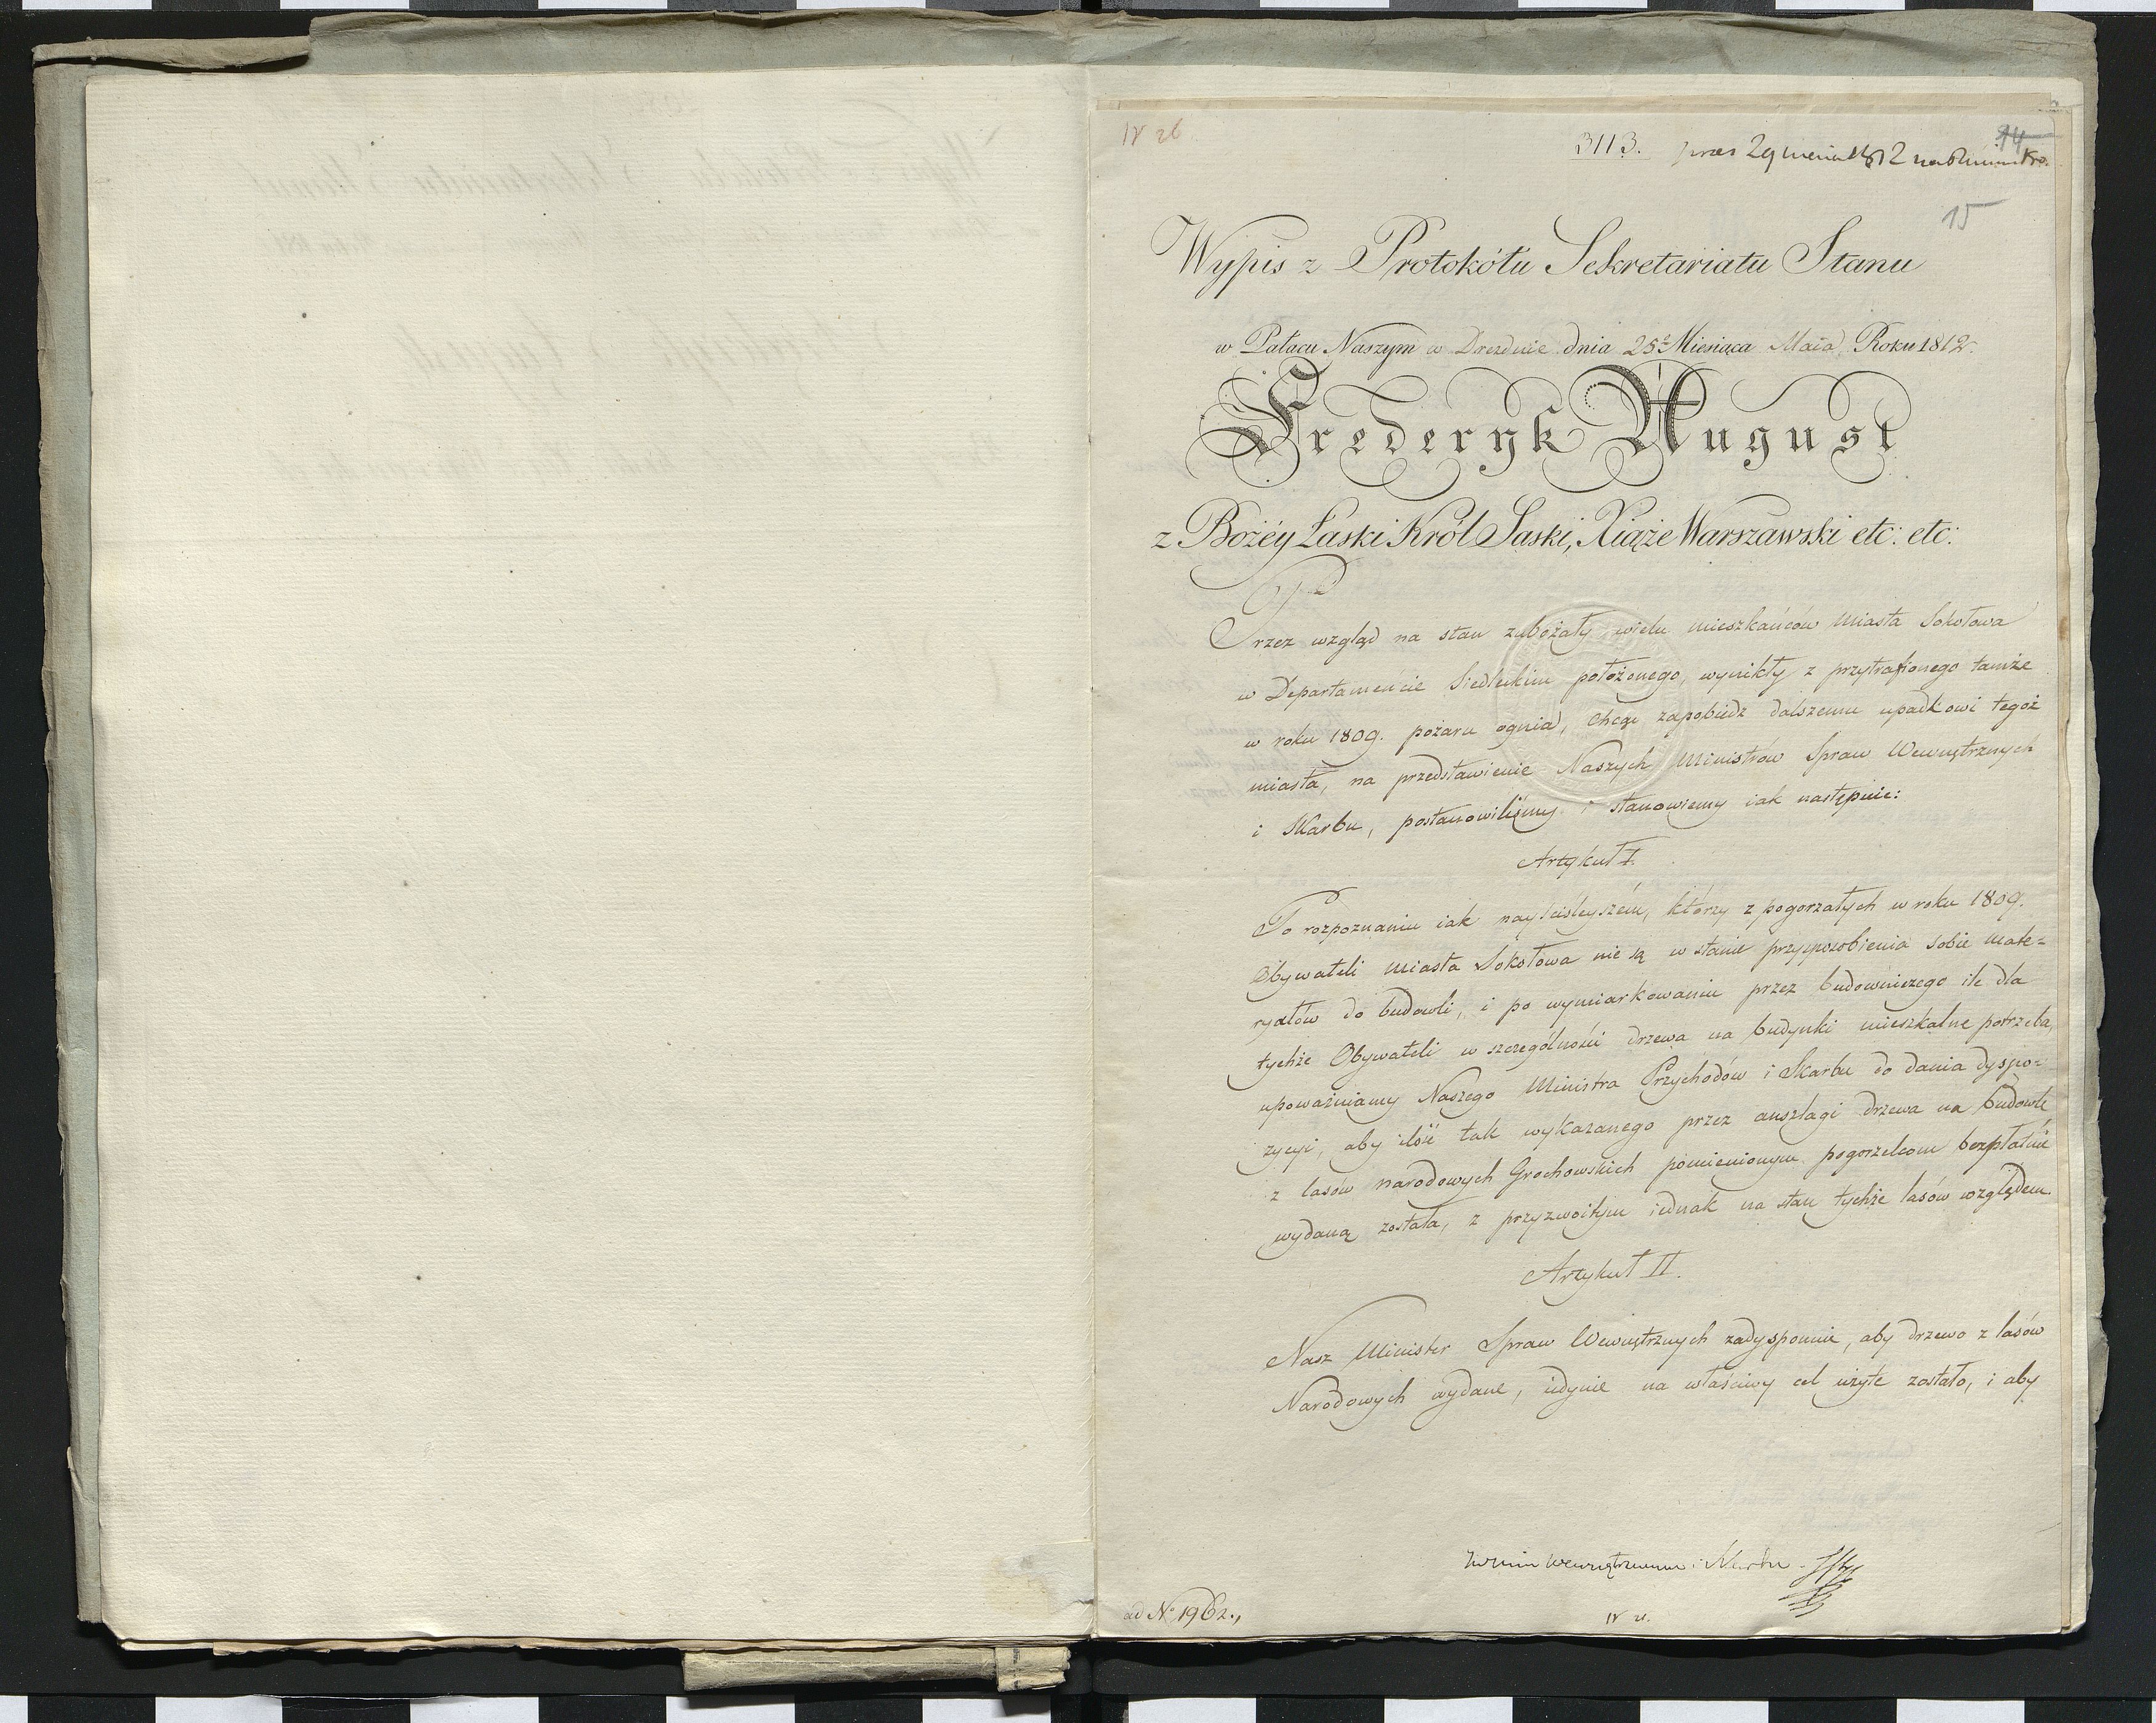 14
3113.
15
Wypis z Protokółu Sekretariatu Stanu
w Pałacu Naszym w Dreźdnie dnia 25º Miesiąca Maia Roku 1812.
Fryderyk August
z Bożéy Łaski Król Saski, Xiąże Warszawski etc: etc:
Przez wzgląd na stan zubożały wielu mieszkańców Miasta Sokołowa
w Departamencie Siedleckim położonego, wynikły z przytrafionego tamże
w roku 1809. pożaru ognia, chcąc zapobiedz dalszemu upadkowi tegoż
miasta, na przedstawienie Naszych Ministrów Spraw Wewnętrznych
i Skarbu, postanowiliśmy i stanowiemy iak następuie:
Artykuł I.
Po rozpoznaniu iak nayściśleyszém, którzy z pogorzałych w roku 1809.
Obywateli Miasta Sokołowa nie są w stanie przysposobienia sobie mate=
ryałów do budowli, i po wymiarkowaniu przez budowniczego ile dla
tychże Obywateli w szczególności drzewa na budynki mieszkalne potrzeba,
upoważniamy Naszego Ministra Przychodów i Skarbu do dania dyspo=
zycyi, aby ilość tak wykazanego przez anszlagi drzewa na budowlę
z lasów narodowych Grochowskich pomienionym pogorzelcom bezpłatnie
wydaną została, z przyzwoitym iednak na stan tychże lasów względem.
Artykuł II.
Nasz Minister Spraw Wewnętrznych zadysponuie, aby drzewo z lasów
Narodowych wydane, iedynie na właściwy cel użyte zostało, i aby
Wewnętrznemu i Skarbu
ad Nº 1962.,